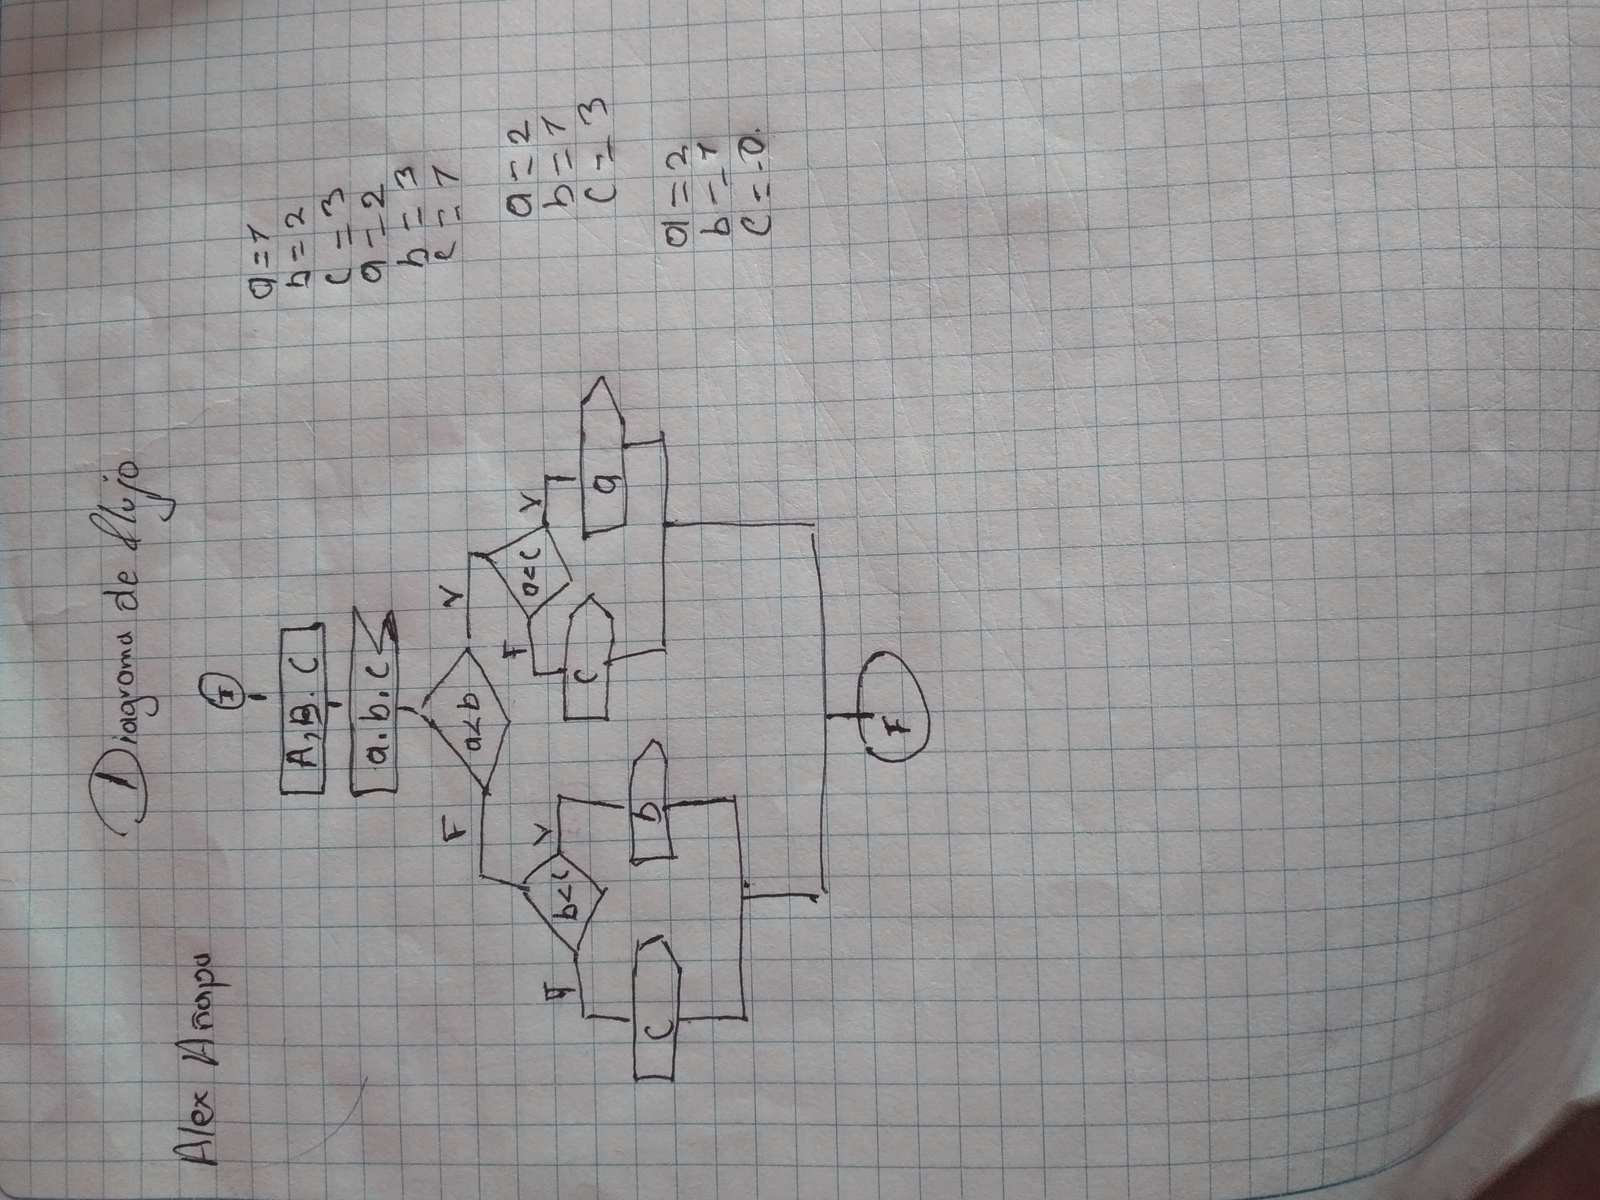 Diagrama de flujo
Alex Añapa
I
A, B. C
a.b.c
F a<b V
F a<c V
F b<c V
C a
C b
F
a=1
b=2
c=3
a=2
b=3
c=1
a=2
b=1
c=3
a=2
b=1
c=-0.